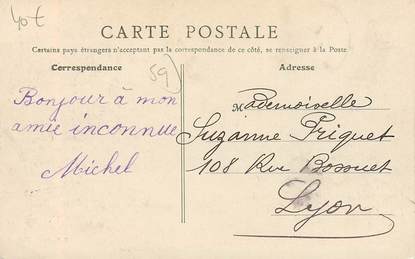 40t
CARTE POSTALE
Certains pays étrangers n'acceptant pas la correspondance de ce côté, se renseigner à la Poste
Correspondance
Adresse
59
Bonjour à mon
amie inconnue
Michel
Mademoiselle
Suzanne Priquet
108 Rue Bossuet
Lyon